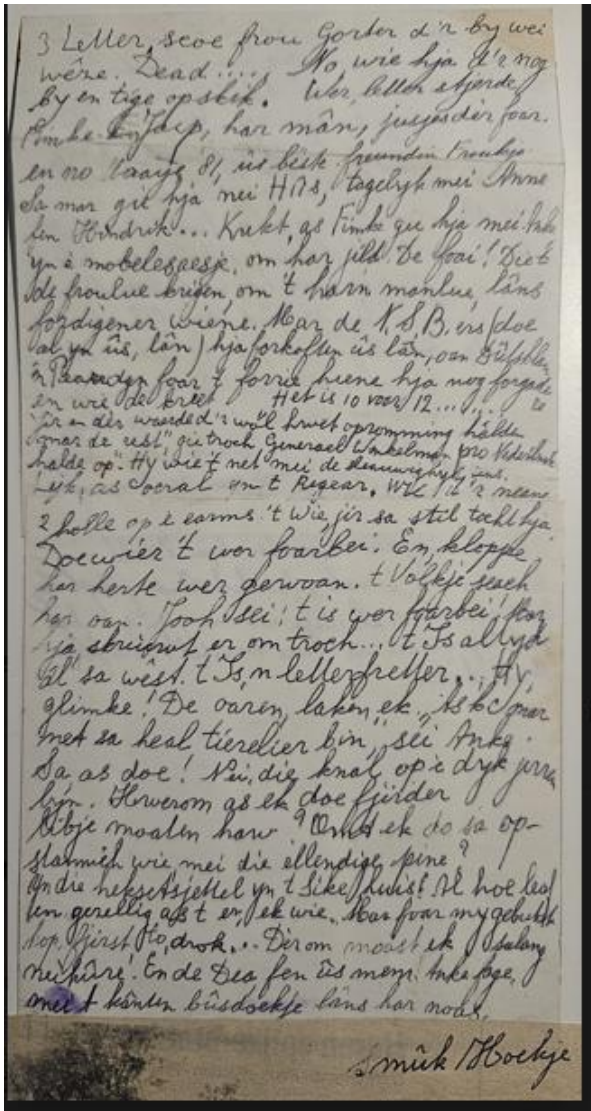 3 Letter, seoe frou Gorter d'r by wei
wêze. Dead....., No, wie hja d'r nog
by en tige op stik. Wer, letter stjerde,
Fimke en Jaep, har mân, justjes dêr foar.
en no Taaije 81, ús bêste freundin Froukje
Sa mar gie hja nei H us, tagelyk mei Anne
fen Hindrik... Krekt, as Fimke gie hja mei Anke
yn è mobelesaesje, om har jild. De foai! Diet
de froulue krigen, om 't harn manlue, lâns
fordigener wiene. Mar de N.S.B.ers (doe
al yn ús, lân) hja forkoften ús lân, oan
foar 't forrie hiene hja nog
en wie de kreet Het is 10 voor 12.......
jir en dêr waerde d'r wol hwet opromming hâlde
"mar de rest", gie troch Generael Winkelman pro Nederlânsk
halde op". Hy wie 't net mei de iens.
Lyk, as oeral yn t Regear.
2 holle op è earms 't Wie, jir sa stil tocht hja
Doe wier 't wer foarbei. En, kloppe
har herte wer gewoan. t Volkje seach
har oan. Jooh sei! t is wer foarbei! Mar
hja er om troch... t Is altyd
al sa wêst. t Is, n letterfretter... Hy,
glimke! De oaren, laken ek. "As ik, mar
net sa heal tierelier bin," sei Anke.
Sa as doe! Nei, die knal op 'e dyk jerre
lyn. Hwerom as ek doe fjirder
libje moaten haw? Omt ek do sa op-
stannich wie mei die ellendige pine?
Yn die heksetsjettel yn t Sike, huis! Al hoe leaf
en gesellig as t er, ek wie. Mar foar my
top, fierst to, drok... Dêr om moast ek sa lang
nei hûre! En de Dea fen ús mem. Anke fage,
mei t kânten bûsdoekje lâns har noas,
smûk Hoekje